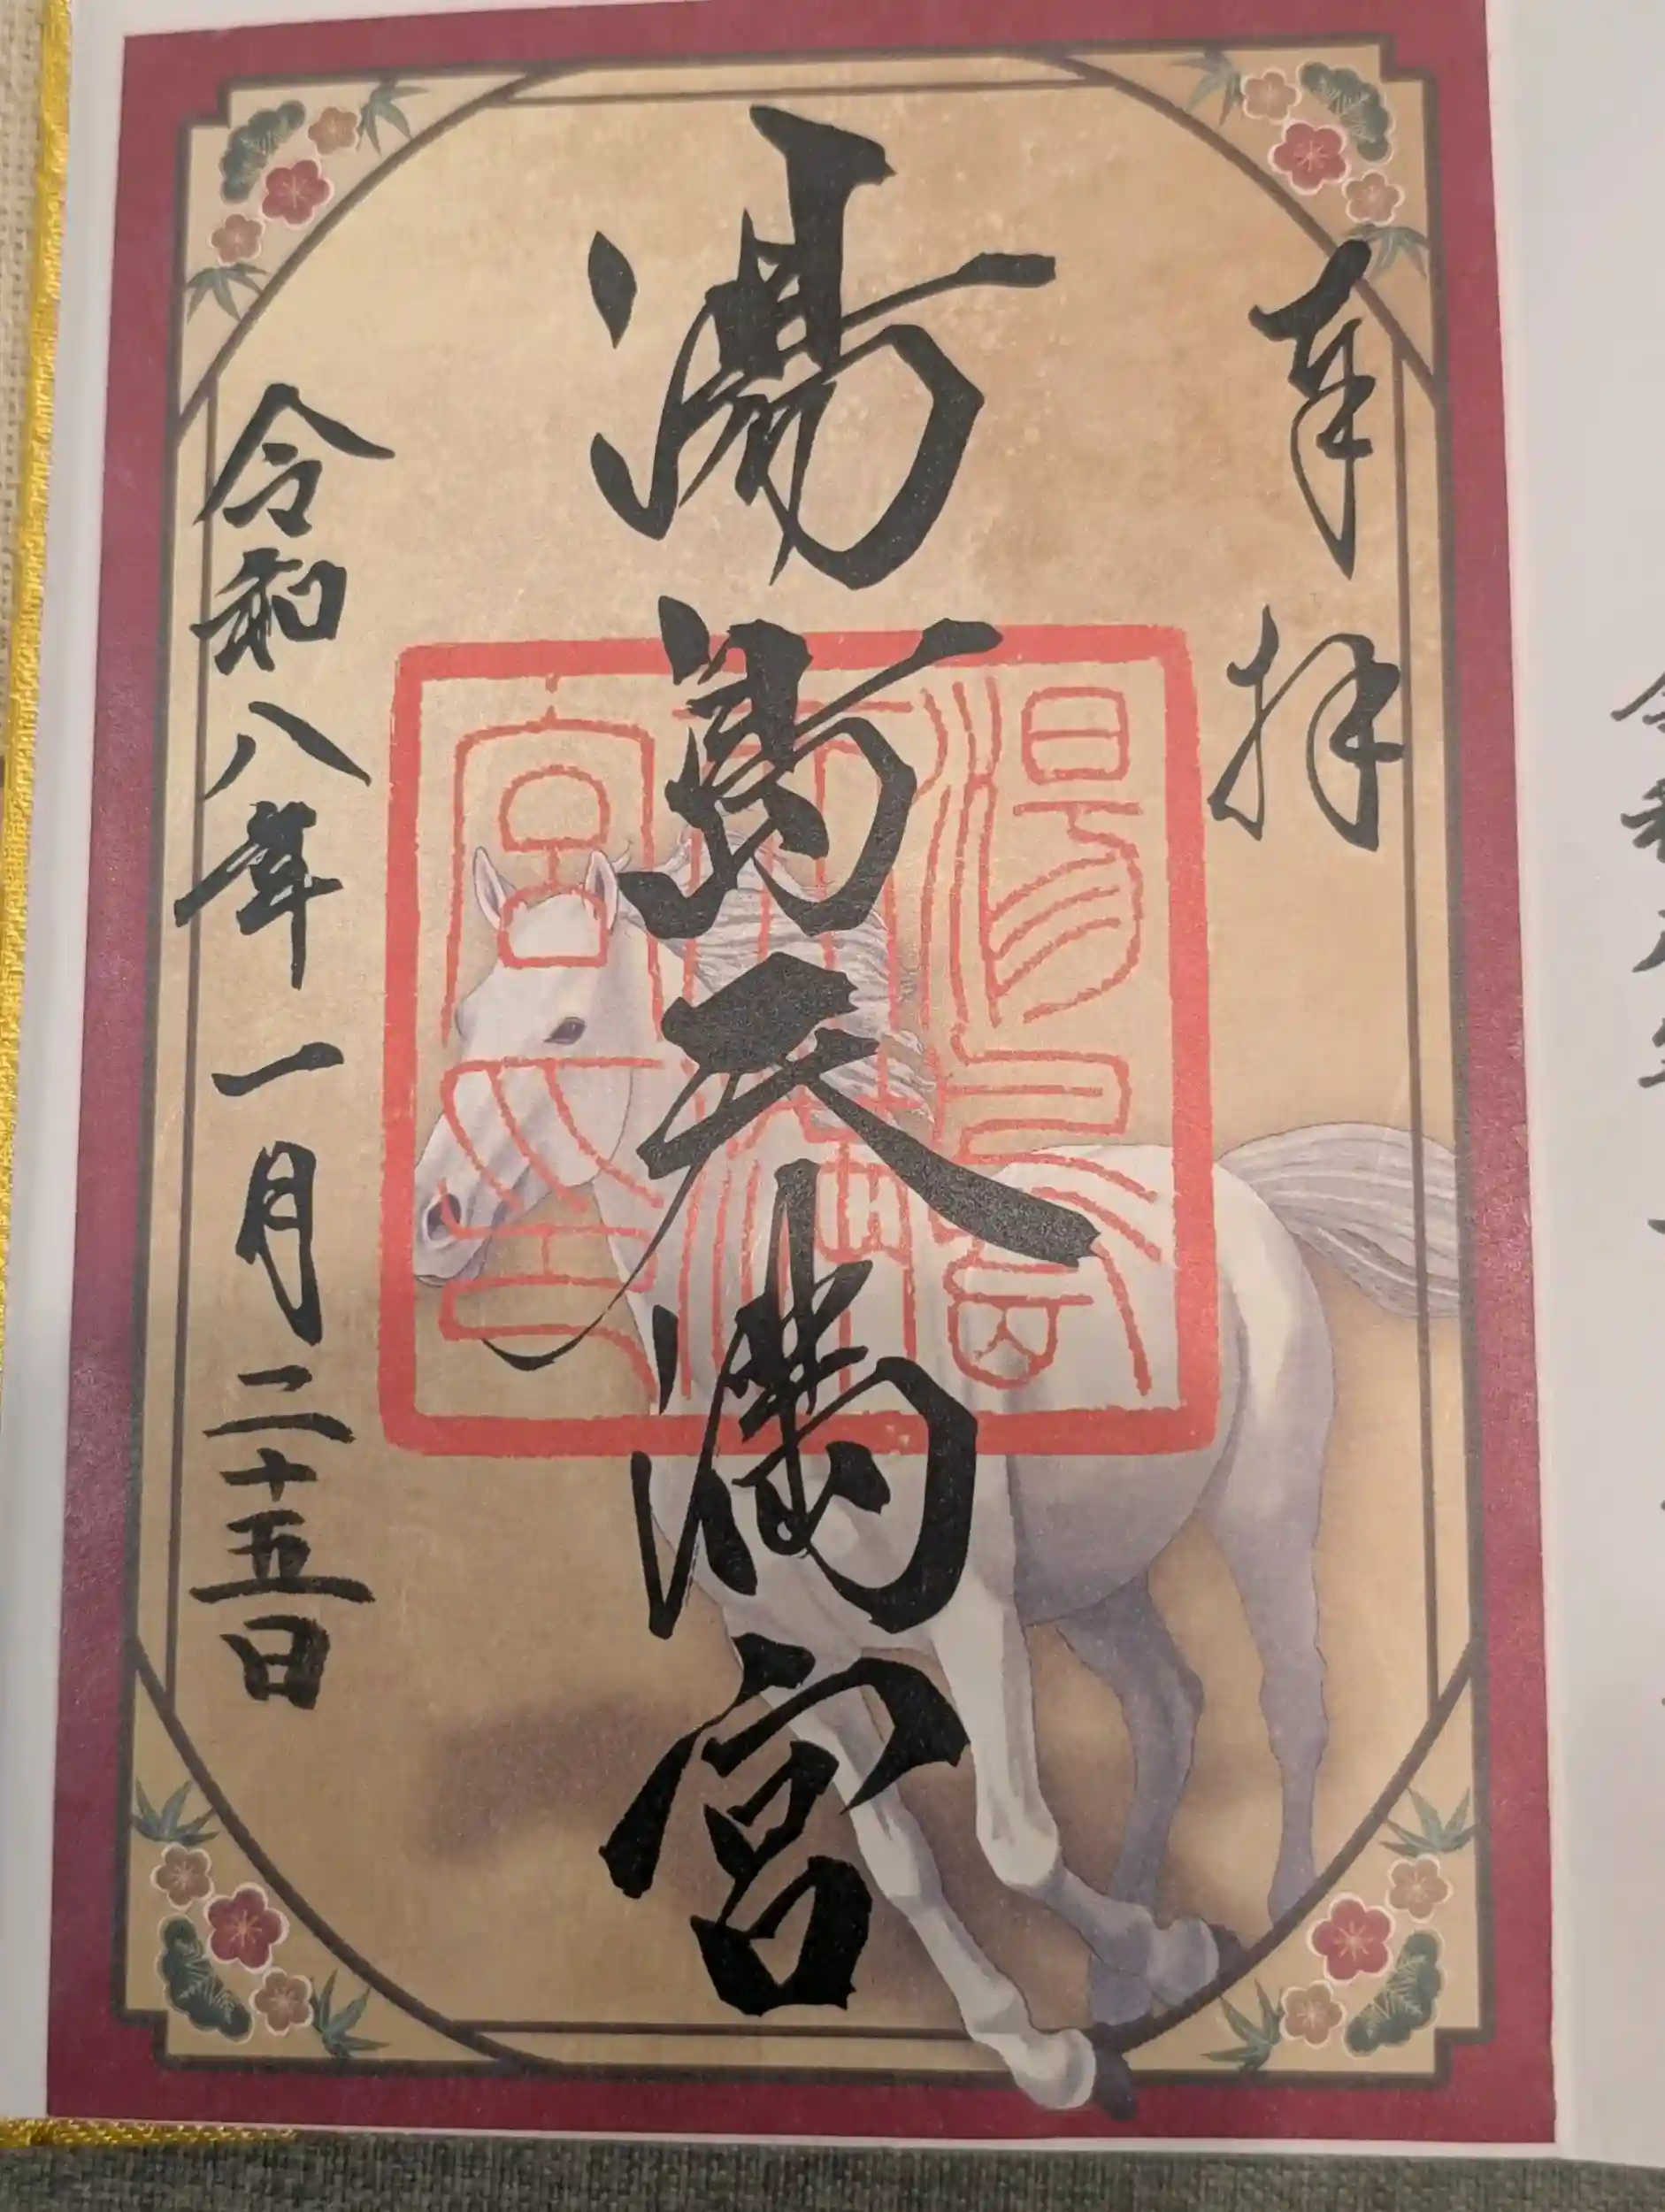 奉拝
湯島天満宮
令和八年一月二十五日
湯島天満宮印